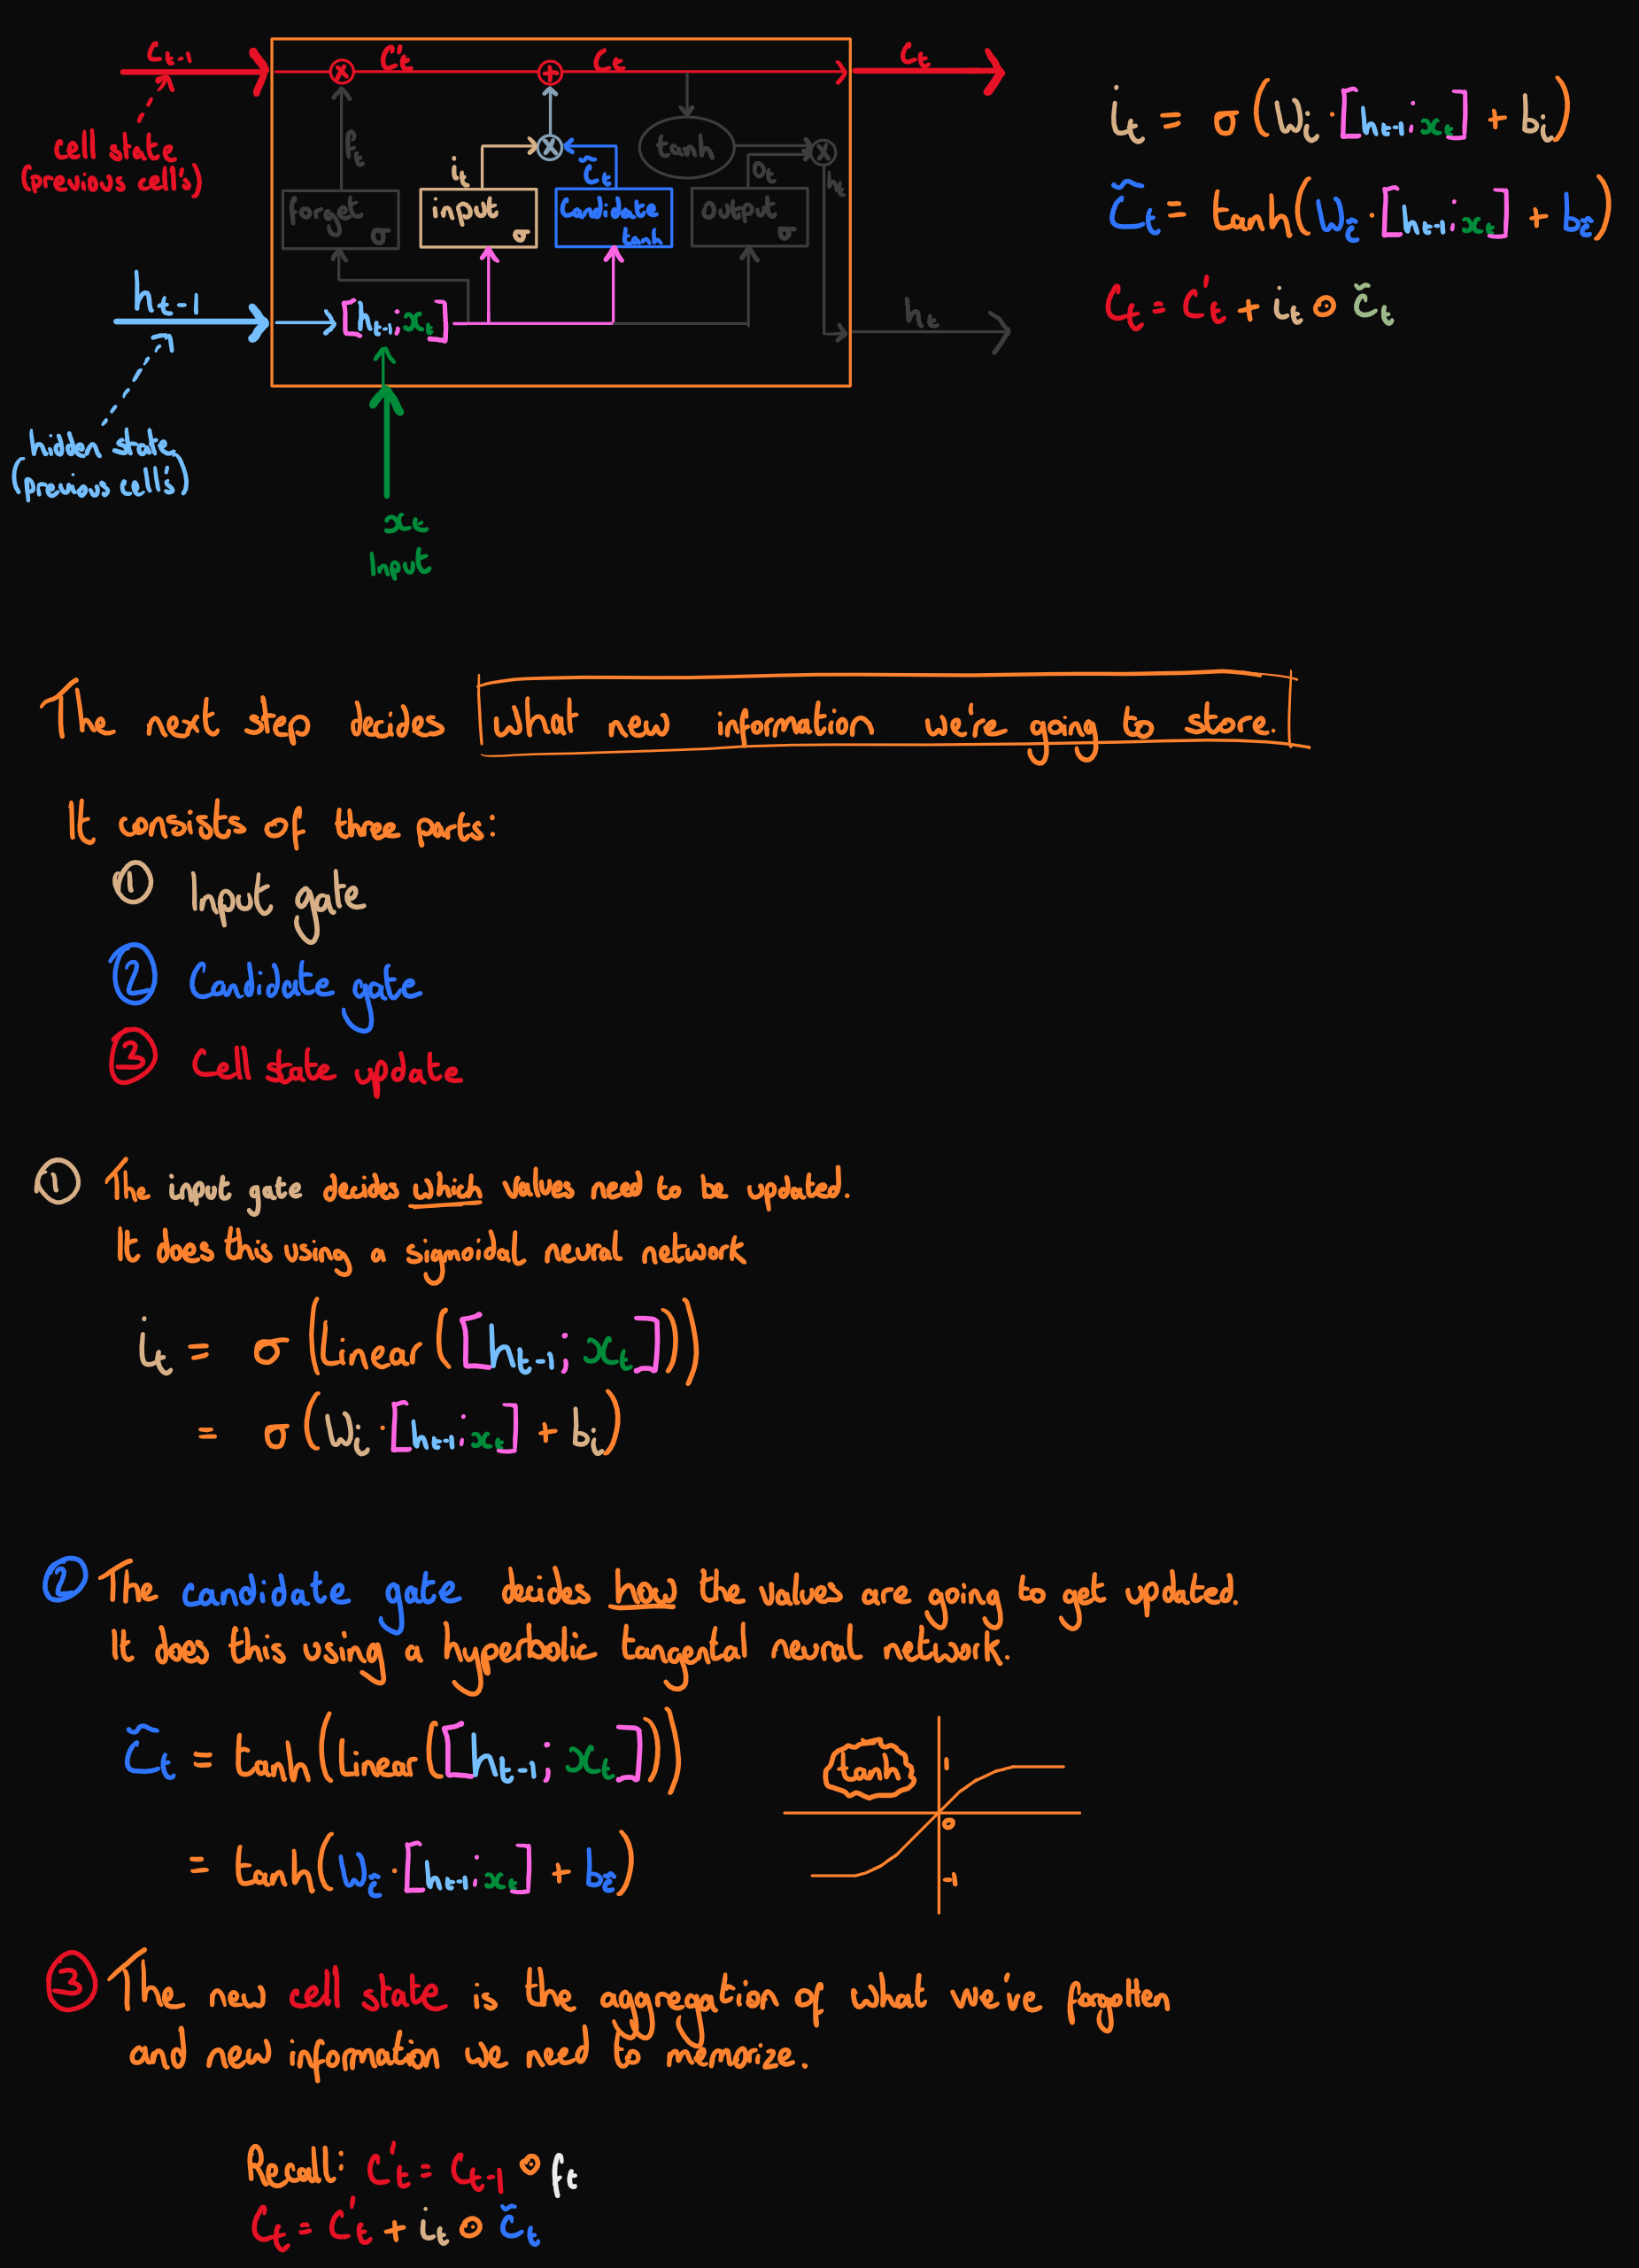 C_{t-1}
C'_t
C_t
C_t
cell state
(previous cell's)
f_t
i_t
C̃_t
tanh
o_t
h_t
forget σ
input σ
Candidate tanh
output σ
h_{t-1}
[h_{t-1}; x_t]
h_t
hidden state
(previous cell's)
x_t
Input
i_t = σ(W_i · [h_{t-1}; x_t] + b_i)
C̃_t = tanh(W_c̃ · [h_{t-1}; x_t] + b_c̃)
C_t = C'_t + i_t ⊙ C̃_t
The next step decides what new information we're going to store.
It consists of three parts:
① Input gate
② Candidate gate
③ Cell state update
① The input gate decides which values need to be updated.
It does this using a sigmoidal neural network
i_t = σ(Linear([h_{t-1}; x_t]))
= σ(W_i · [h_{t-1}; x_t] + b_i)
② The candidate gate decides how the values are going to get updated.
It does this using a hyperbolic tangental neural network.
C̃_t = tanh(Linear([h_{t-1}; x_t]))
= tanh(W_c̃ · [h_{t-1}; x_t] + b_c̃)
tanh
1
0
-1
③ The new cell state is the aggregation of what we've forgotten
and new information we need to memorize.
Recall: C'_t = C_{t-1} ⊙ f_t
C_t = C'_t + i_t ⊙ C̃_t